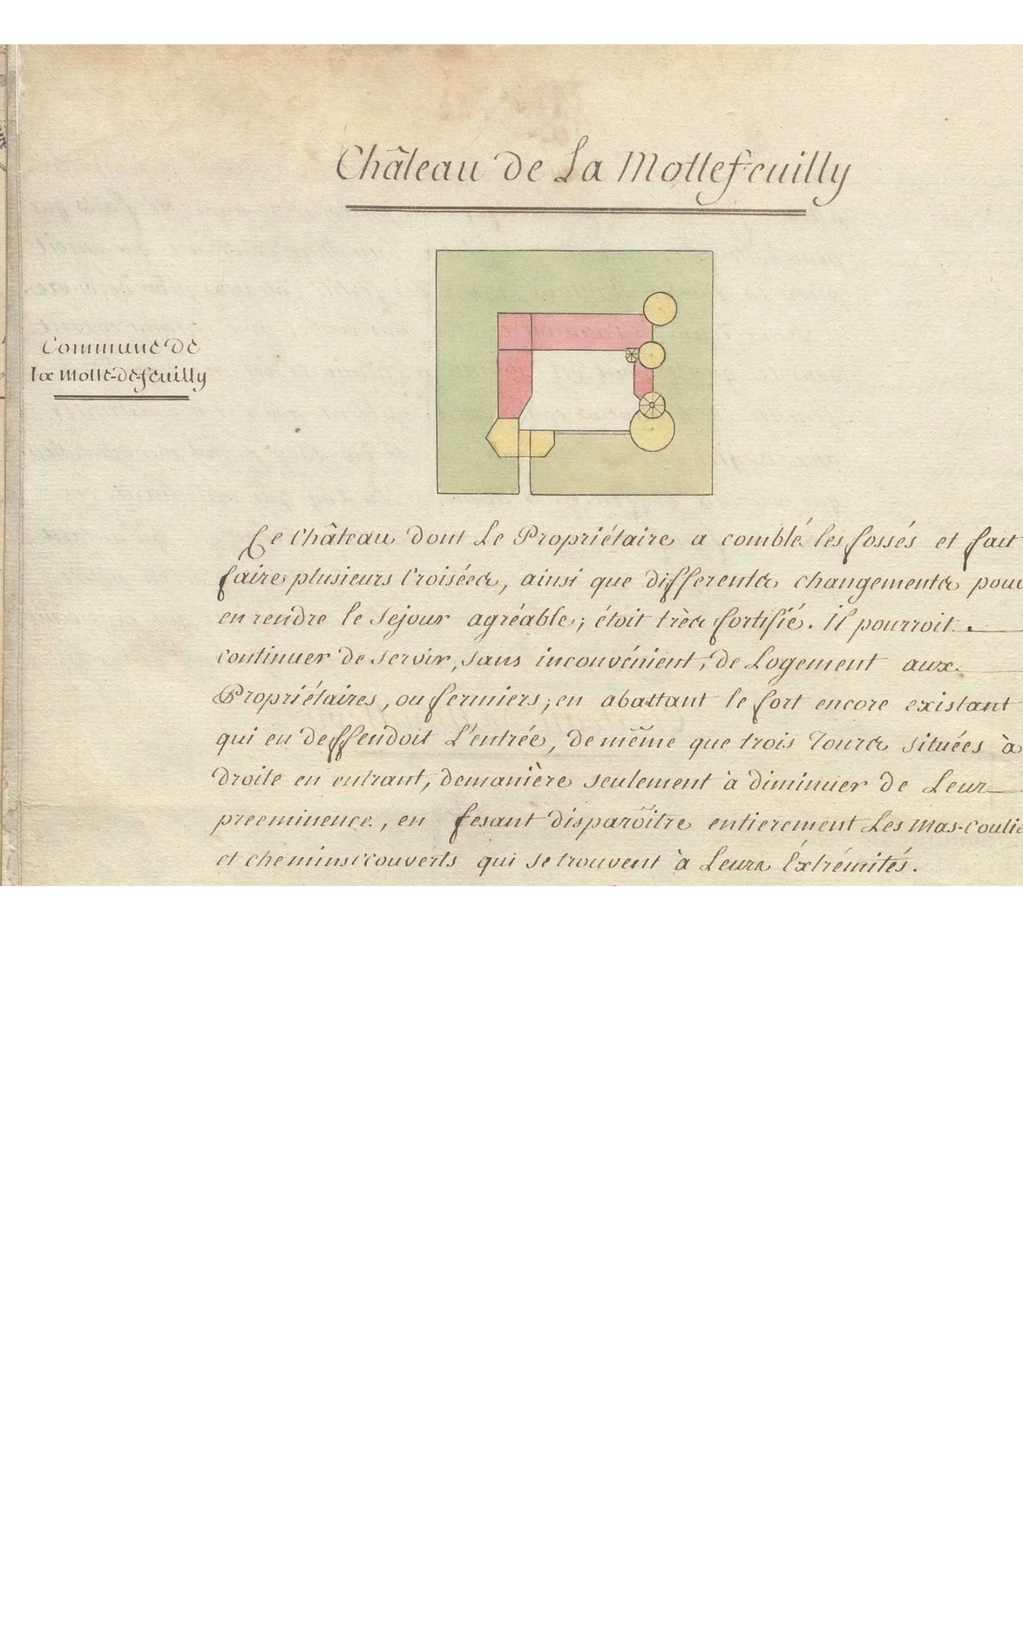 Château de La Mottefeuilly
Commune de
La Motte-de-feuilly
Ce Château dont Le Propriétaire a comblé les fossés et fait
faire plusieurs Croisées, ainsi que differents changements pour
en rendre le séjour agréable; étoit très fortifié. Il pourroit
continuer de servir, sans inconvénient, de Logement aux
Propriétaires, ou fermiers; en abattant le fort encore existant
qui en deffendoit L'entrée, de même que trois Tours situées à
droite en entrant, de manière seulement à diminuer de Leur
preeminence, en fesant disparoître entierement Les mas-coulis
et chemins couverts qui se trouvent à Leurs Extrémités.